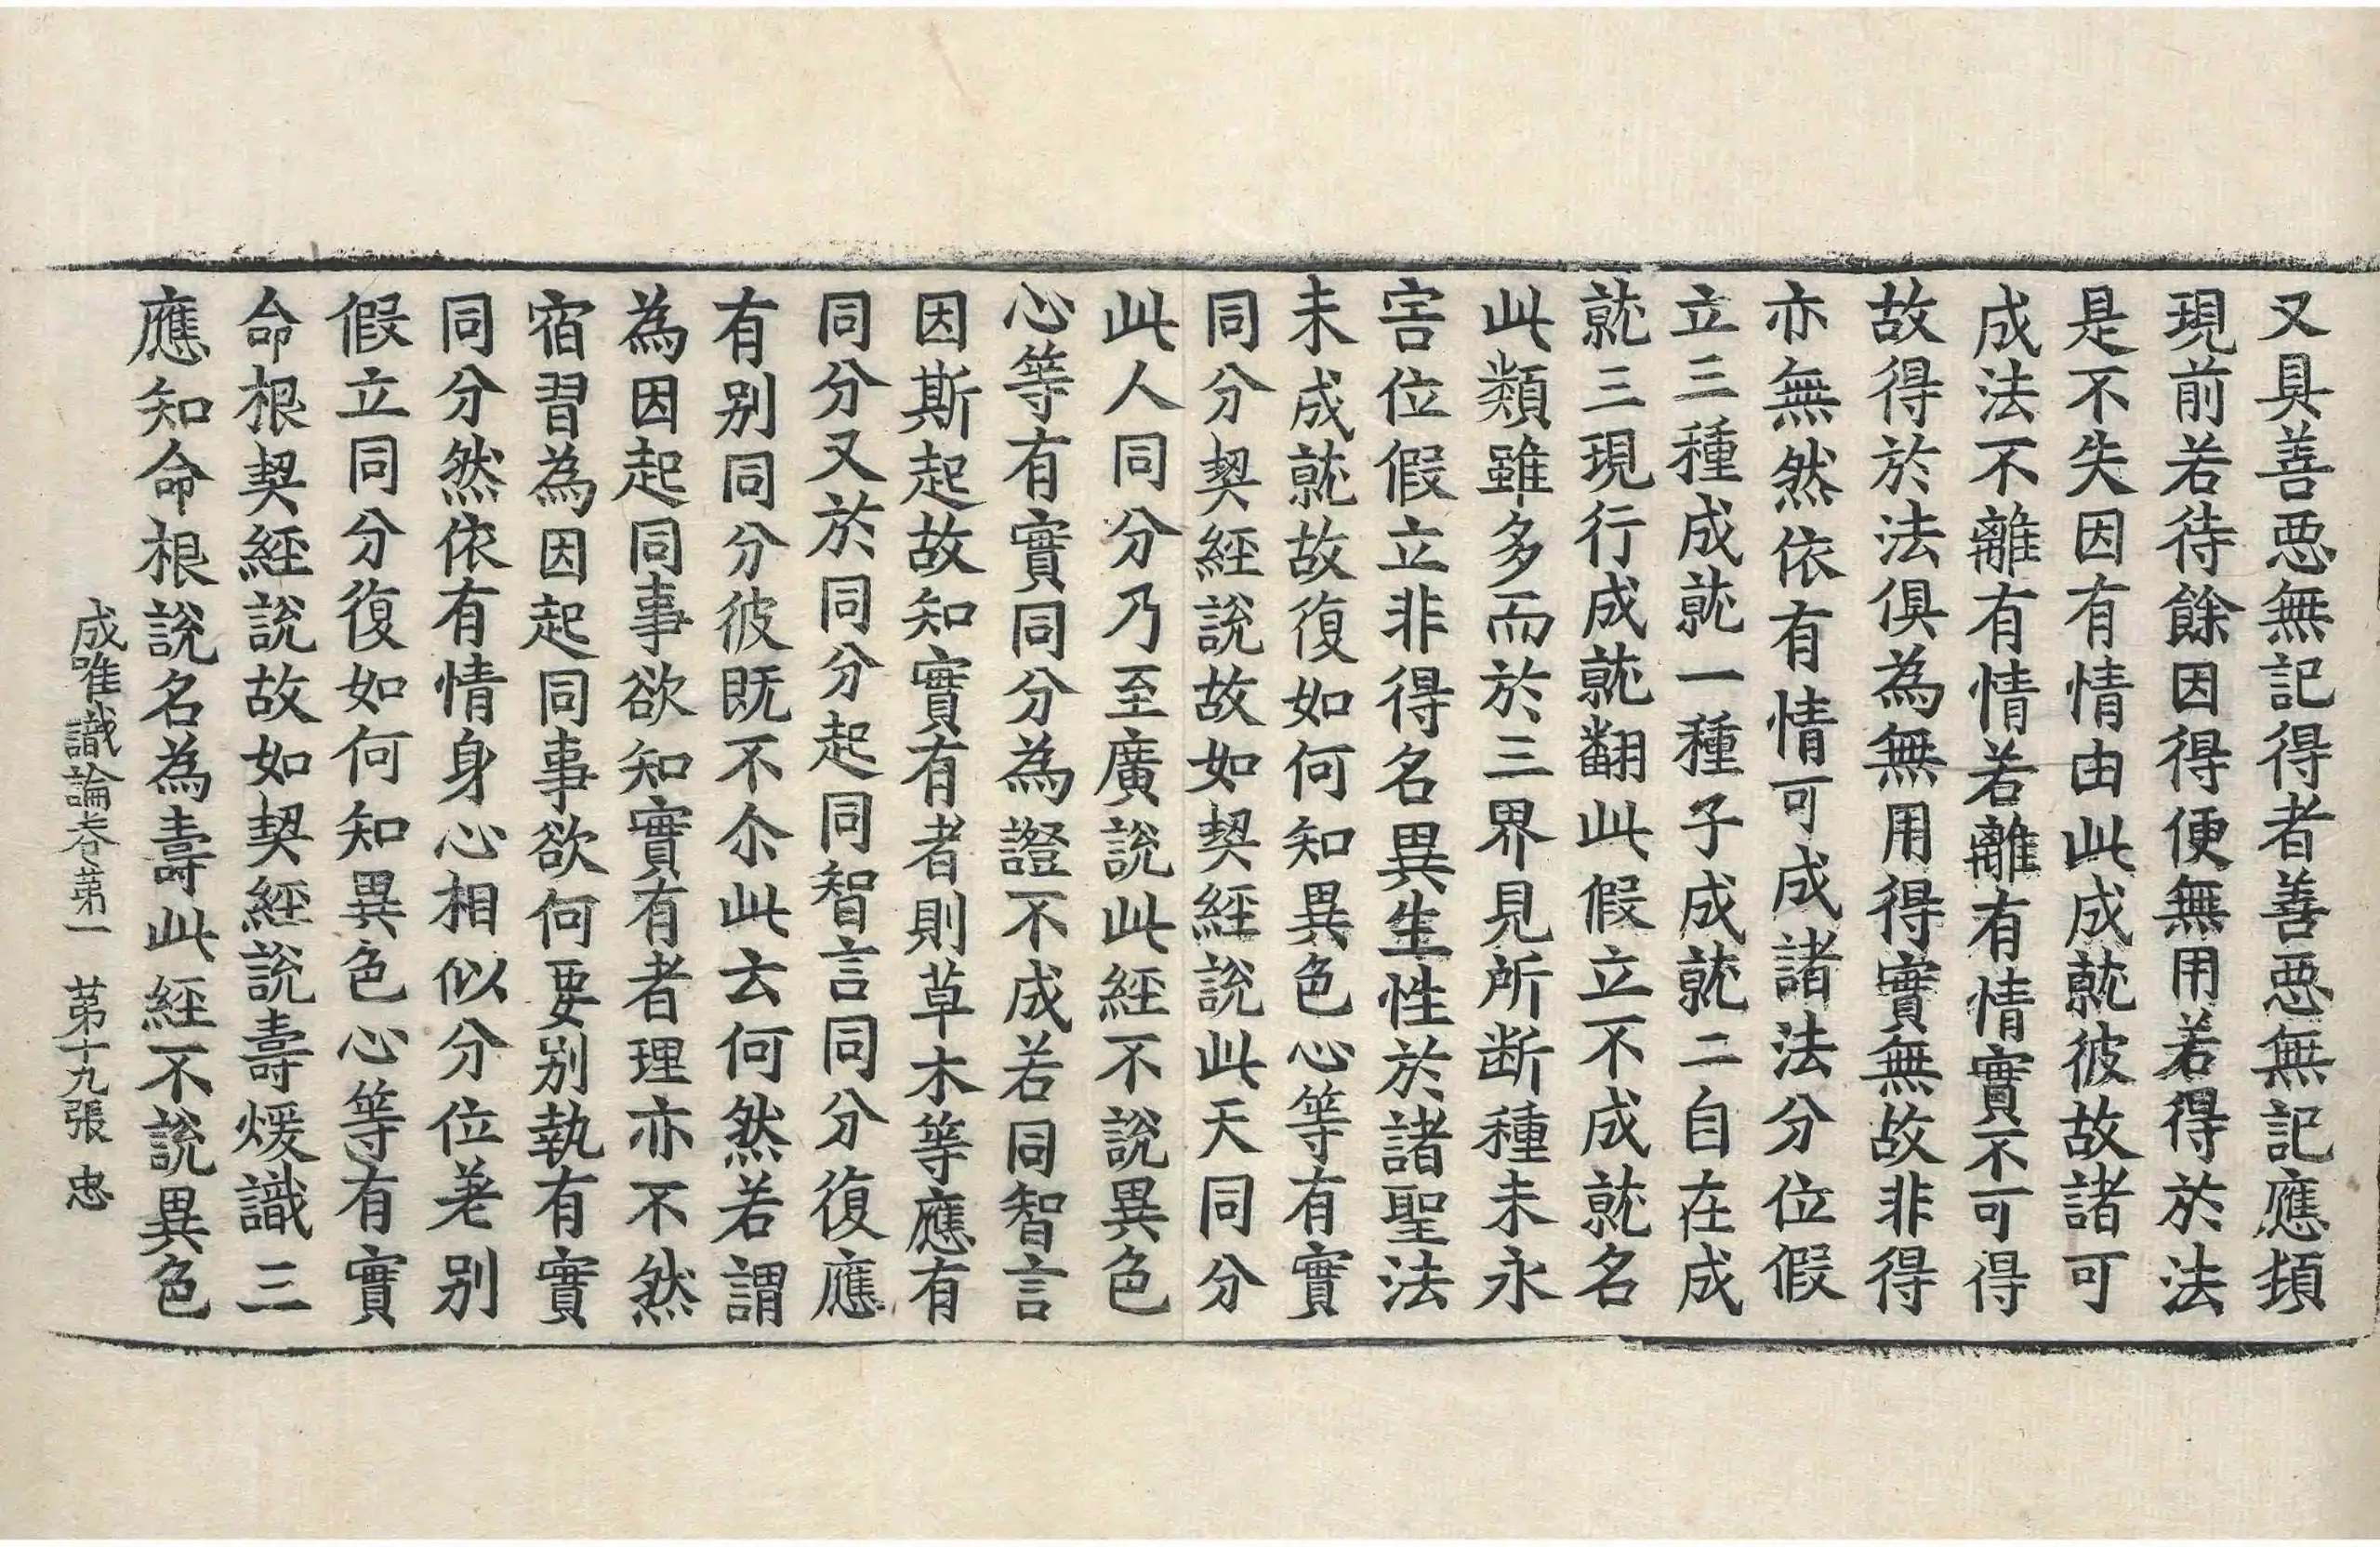 又具善惡無記得者善惡無記應頓
現前若待餘因得便無用若得於法
是不失因有情由此成就彼故諸可
成法不離有情若離有情實不可得
故得於法俱為無用得實無故非得
亦無然依有情可成諸法分位假
立三種成就一種子成就二自在成
就三現行成就翻此假立不成就名
此類雖多而於三界見所断種未永
害位假立非得名異生性於諸聖法
未成就故復如何知異色心等有實
同分契經說故如契經說此天同分
此人同分乃至廣說此經不說異色
心等有實同分為證不成若同智言
因斯起故知實有者則草木等應有
同分又於同分起同智言同分復應
有别同分彼既不尒此云何然若謂
為因起同事欲知實有者理亦不然
宿習為因起同事欲何要别執有實
同分然依有情身心相似分位差别
假立同分復如何知異色心等有實
命根契經說故如契經說壽煖識三
應知命根說名為壽此經不說異色
成唯識論卷第一 第十九張 忠